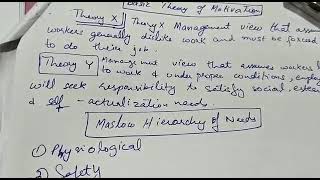 Basic Theory of Motivation
Theory X Theory X Management view that assum
workers generally dislike work and must be forced
to do their job.
Theory Y Management view that assumes workers
to work & under proper conditions, employ
will seek responsibility to satisfy social, estee
& self-actualization needs.
Maslow Hierarchy of Needs
① Physiological
② Safety